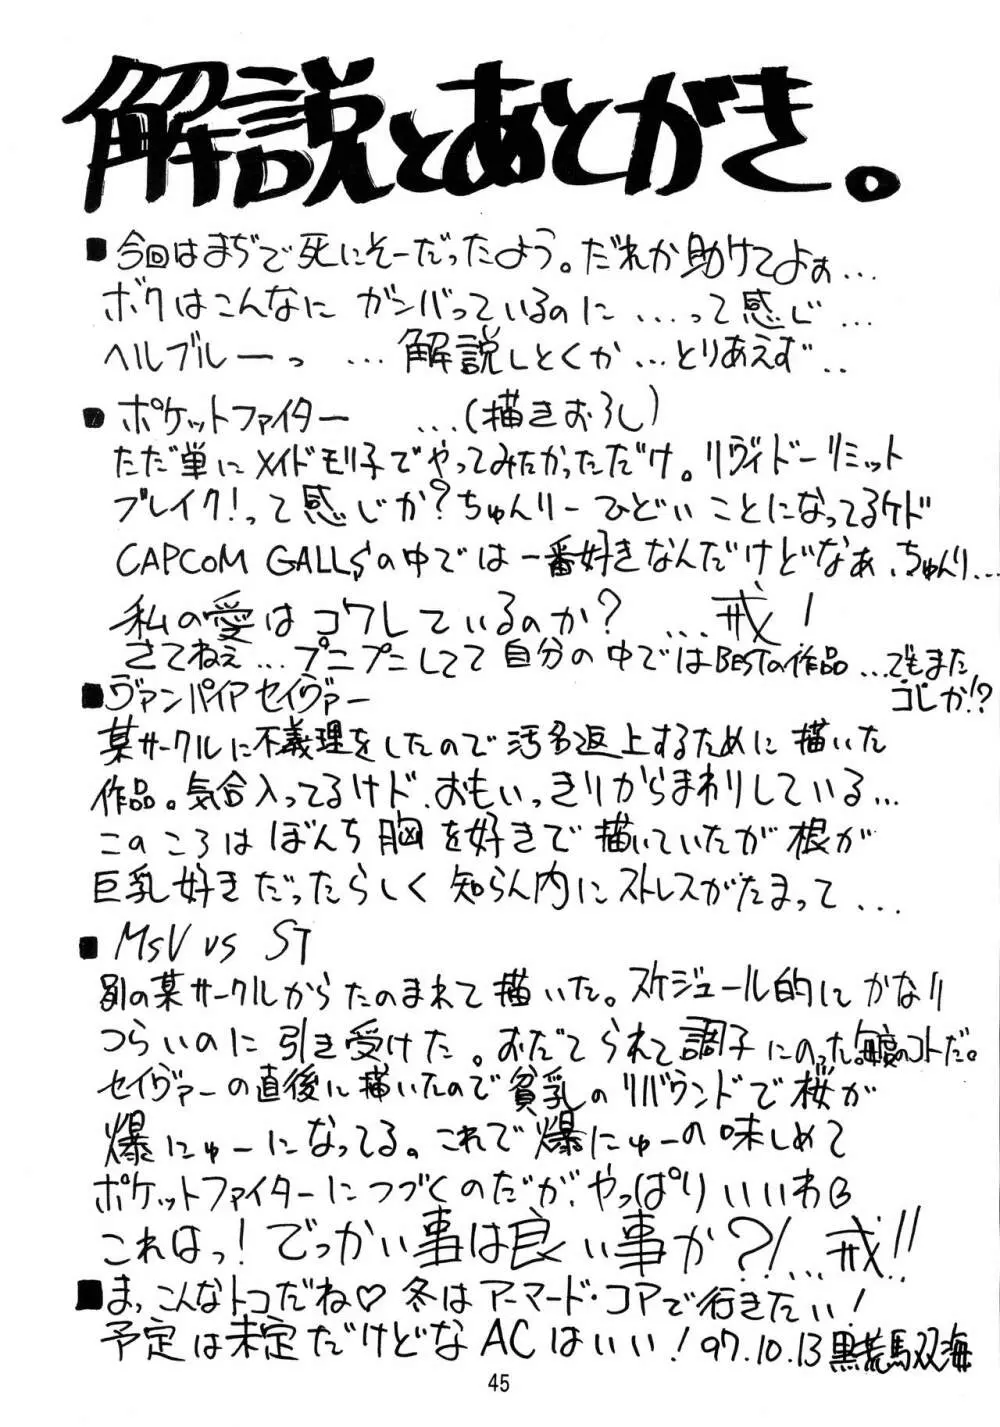 解説とあとがき。
■今回はまぢで死にそーだったよう。だれか助けてよぉ...
ボクはこんなに ガンバっているのに...って感じ...
ヘルブルーっ ...解説しとくか...とりあえず..
■ポケットファイター ...(描きおろし)
ただ単にメイドモリ子でやってみたかっただけ。リヴィドーリミット
ブレイク!って感じか?ちゅんりー ひどいことになってるケド
CAPCOM GALLSの中では一番好きなんだけどなぁ、ちゅんり...
私の愛はコワレているのか? ...戒!
さてねぇ...プニプニしてて自分の中ではBESTの作品...でもまた
コレか!?
■ヴァンパイアセイヴァー
某サークルに不義理をしたので汚名返上するために描いた
作品。気合入ってるけド、おもいっきりからまわりしている...
このころは ぼんち胸を好きで描いていたが根が
巨乳好きだったらしく 知らん内にストレスがたまって...
■MSV vs ST
別の某サークルからたのまれて描いた。スケジュール的にかなり
つらいのに引き受けた。おだてられて調子にのった。毎度のコトだ。
セイヴァーの直後に描いたので貧乳のリバウンドで桜が
爆にゅーになってる。これで爆にゅーの味しめて
ポケットファイターにつづくのだが、やっぱりいいわB
これはっ!でっかい事は良い事か?!...戒!!
■まっこんなトコだね♡冬はアーマード・コアで行きたい!
予定は未定だけどなACはいい!97.10.13黒荒馬双海
45